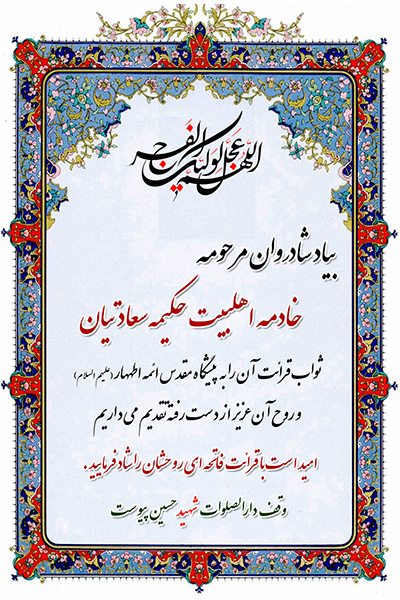 اللهم عجل لولیک الفرج
بیاد شادروان مرحومه
خادمه اهلبیت حکیمه سعادتیان
ثواب قرائت آن را به پیشگاه مقدس ائمه اطهار (علیهم السلام)
و روح آن عزیز از دست رفته تقدیم می داریم
امید است با قرائت فاتحه ای روحشان را شاد فرمایید .
وقف دارالصلوات شهید حسین پیوست